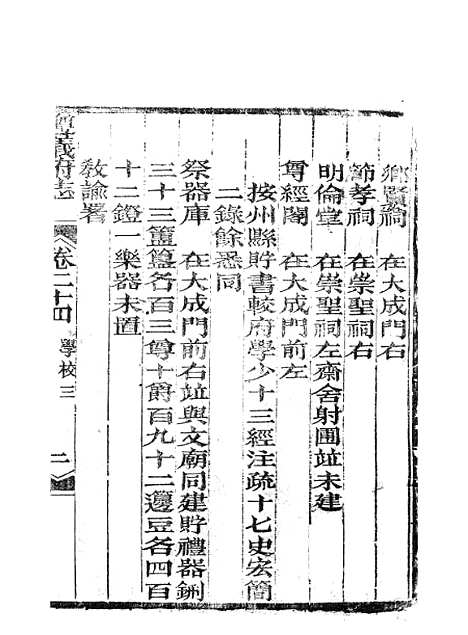 鄉賢祠　在大成門右
節孝祠　在崇聖祠右
明倫堂　在崇聖祠左齋舍射圃竝未建
尊經閣　在大成門前左
按州縣貯書較府學少十三經注疏十七史宏簡
二錄餘悉同
祭器庫　在大成門前右竝與文廟同建貯禮器鉶
三十三簠簋各百三尊十爵百九十二籩豆各四百
十二鐙一樂器未置
教諭署
遵義府志　卷二十四　學校三　二